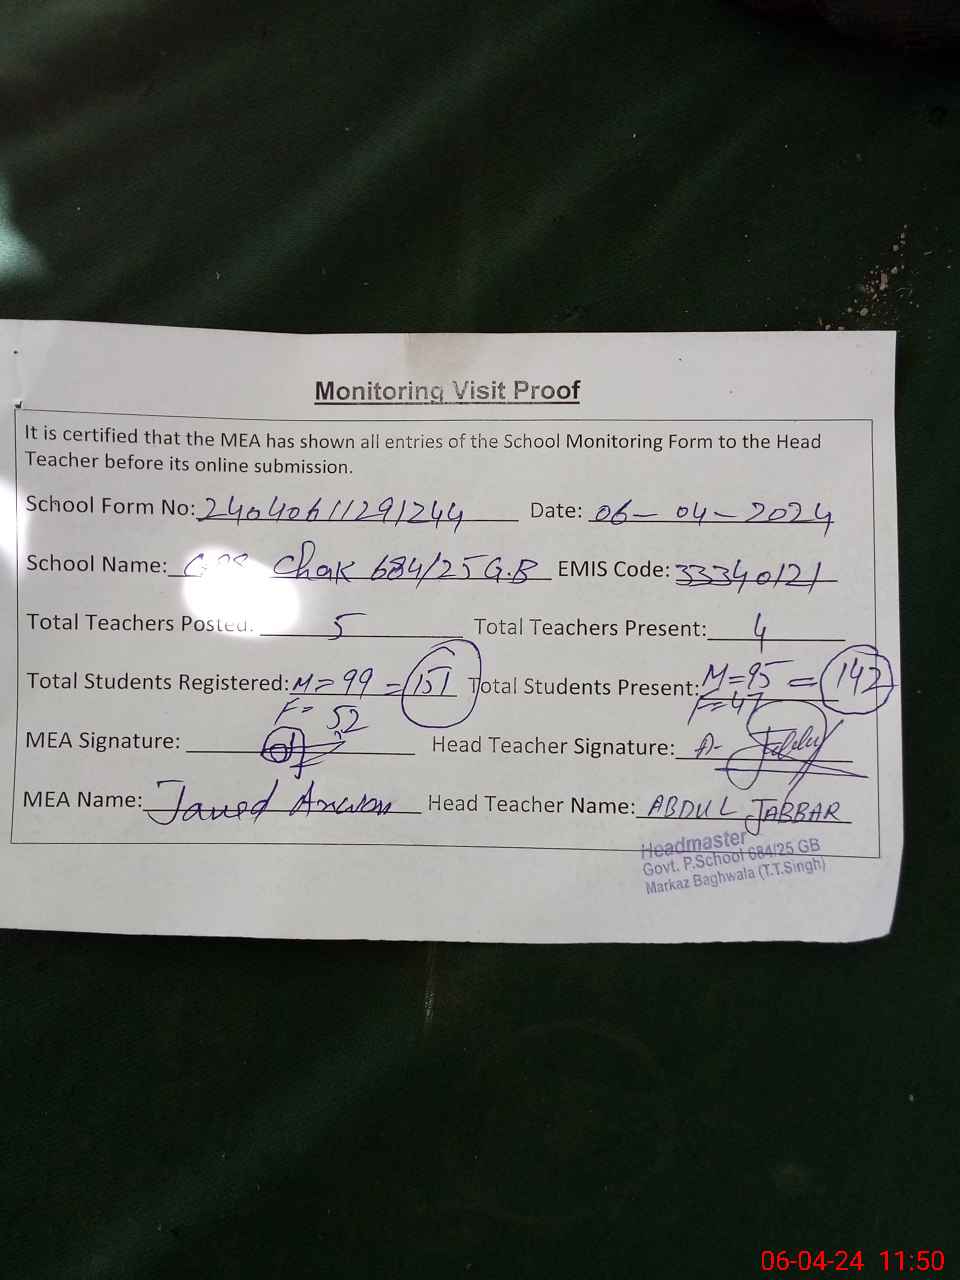 Monitoring Visit Proof
It is certified that the MEA has shown all entries of the School Monitoring Form to the Head
Teacher before its online submission.
School Form No: 24040611291244 Date: 06-04-2024
School Name: Chak 684/25 G.B EMIS Code: 33340121
Total Teachers Posted: 5 Total Teachers Present: 4
Total Students Registered: M=99 = 151 Total Students Present: M=95 = 142
F=52 F=47
MEA Signature: Head Teacher Signature:
MEA Name: Javed Anwar Head Teacher Name: ABDUL JABBAR
Headmaster
Govt. P.School 684/25 GB
Markaz Baghwala (T.T.Singh)
06-04-24 11:50